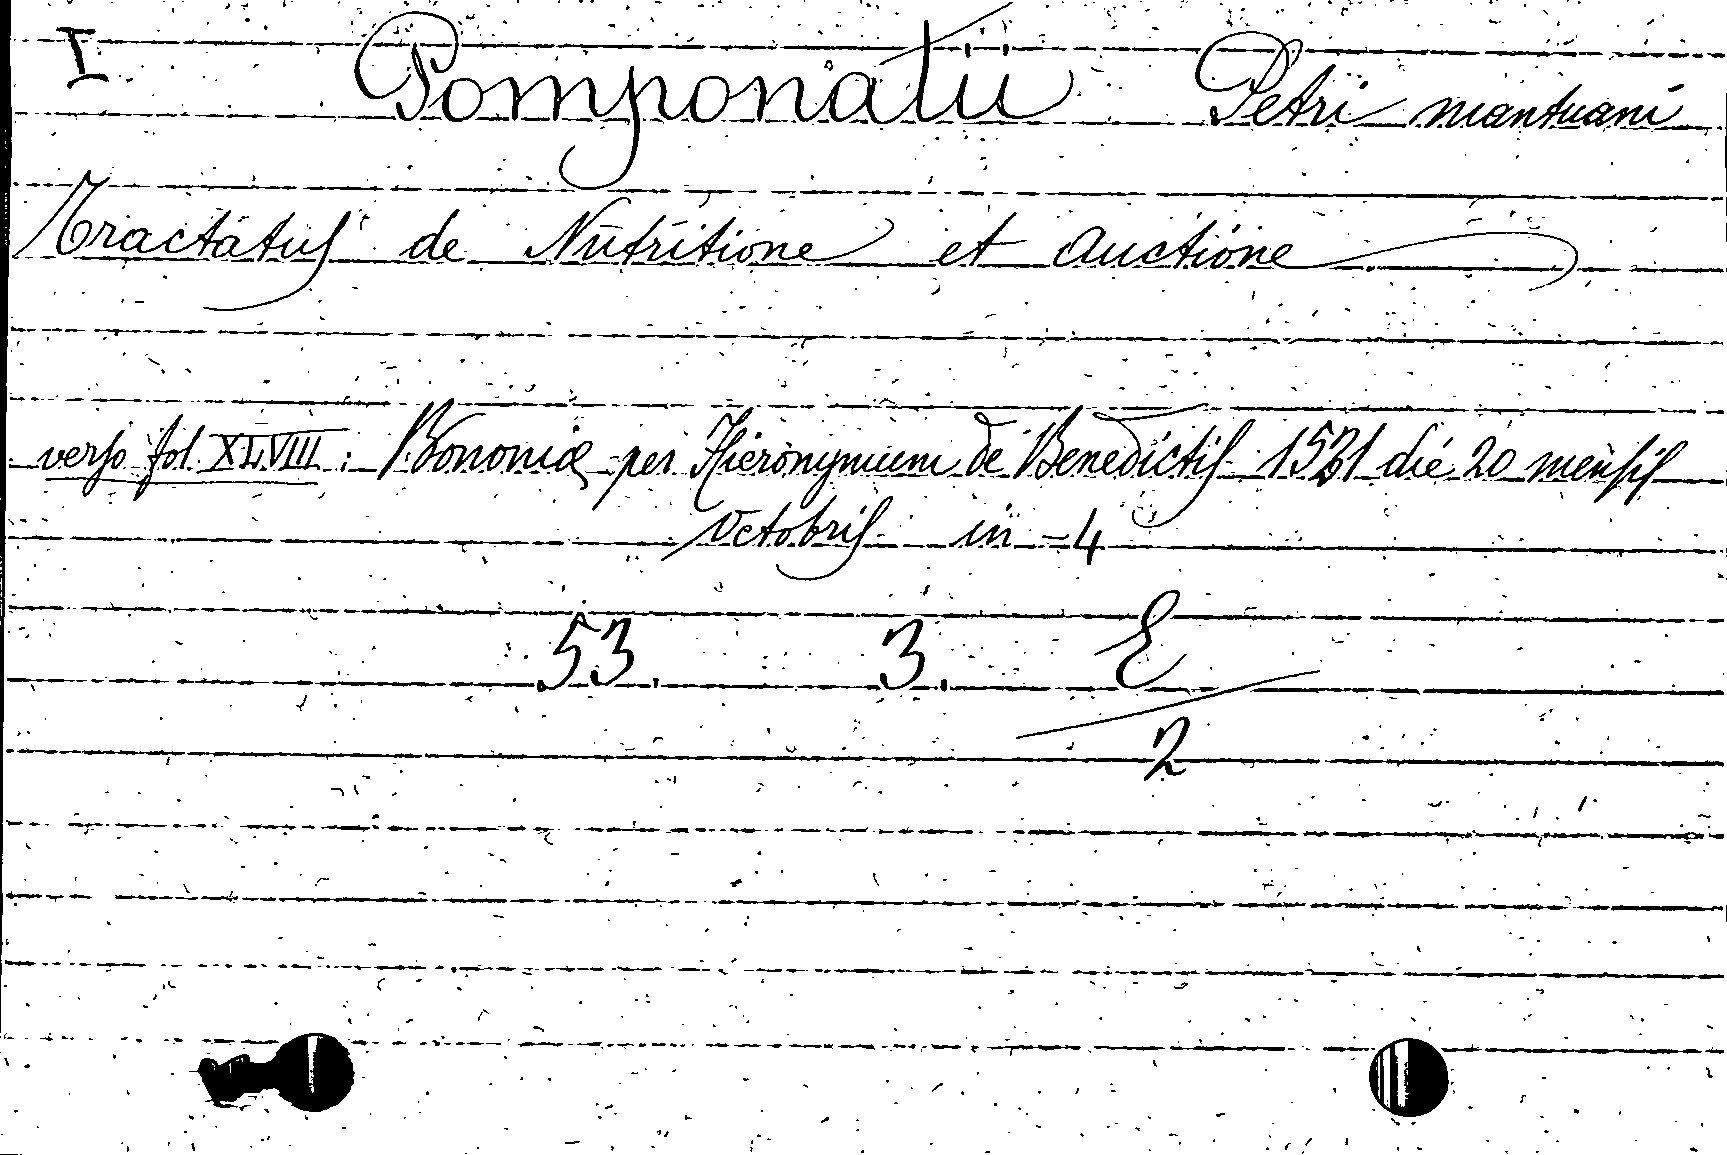 I Pomponatii Petri mantuani
Tractatus de Nutritione et auctione
verso fol. XLVIII : Bononiæ per Hieronymum de Benedictis 1521 die 20 mensis
Octobris in-4
53. 3. E
2